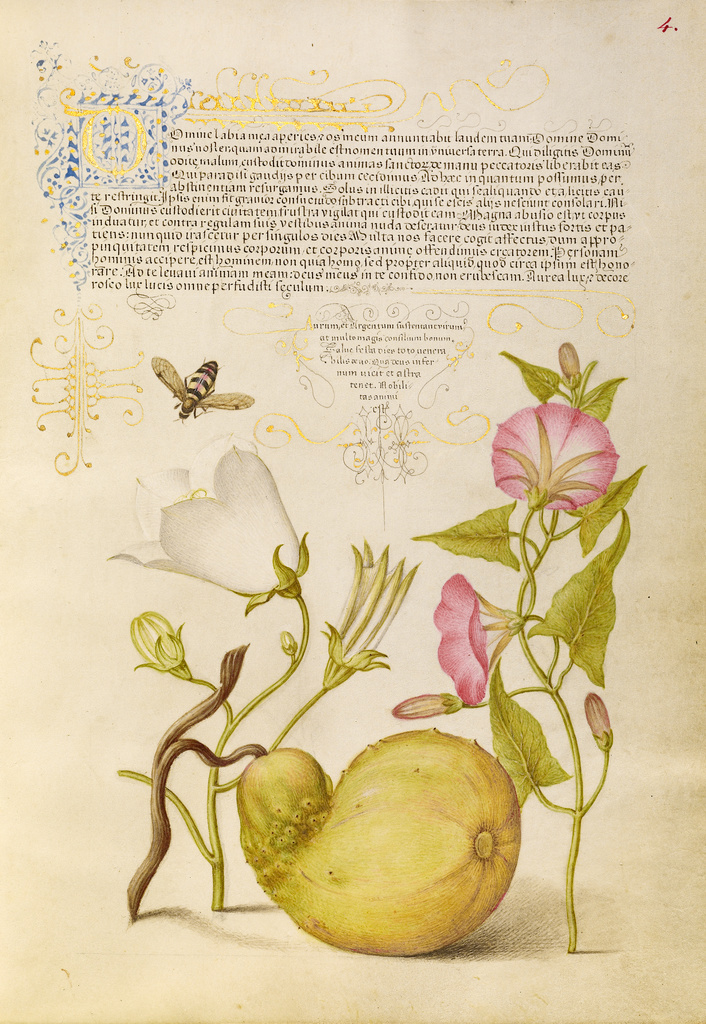 4.
Domine labia mea aperies: & os meum annuntiabit laudem tuam. Domine Domi-
nus noster, quam admirabile est nomen tuum in universa terra. Qui diligitis Dominum
odite malum, custodit dominus animas sanctor. de manu peccatoris liberabit eas.
Qui paradisi gaudys per cibum cecidimus Ad hæc in quantum possumus, per
abstinentiam resurgamus. Solus in illicitis cadit qui se aliquando et a licitis cau-
te restringit. Ipsis enim fit gravior consuetudo subtracti cibi, qui se escis alijs nesciunt consolari. Ni-
si Dominus custodierit civitatem frustra vigilat qui custodit eam. Magna abusio est, ut corpus
induatur, et contra regulam suis vestibus anima nuda deseratur. deus iudex iustus fortis et pa-
tiens: nunquid irascetur per singulos dies Multa nos facere cogit affectus, dum appro-
pinquitatem respicimus corporum, et corporis animæ offendimus creatorem. Personam
hominis accipere, est hominem, non qua homo, sed propter aliquid, quod circa ipsum est, hono-
rare. Ad te levavi animam meam: deus meus in te confido, non erubescam. Aurea luce, & decore
roseo lux lucis omne perfudisti seculum.
Aurum, et Argentum sustentant virum,
at multo magis consilium bonum.
Salve festa dies toto venera
bilis ævo. Qua deus infer-
num vicit et astra
tenet. Nobili-
tas animi
est.